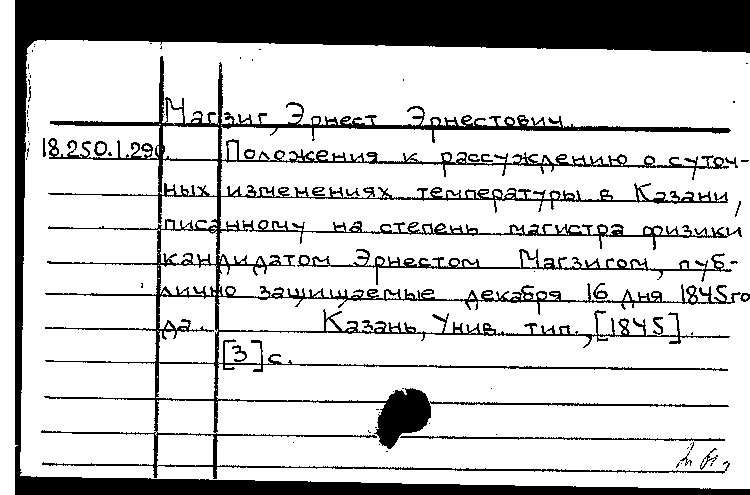 Магзиг, Эрнест Эрнестович.
18.250.1.290. Положения к рассуждению о суточ-
ных изменениях температуры в Казани,
писанному на степень магистра физики
кандидатом Эрнестом Магзигом, пуб-
лично защищаемые декабря 16 дня 1845 го
да. Казань, Унив. тип., [1845].
[3] с.